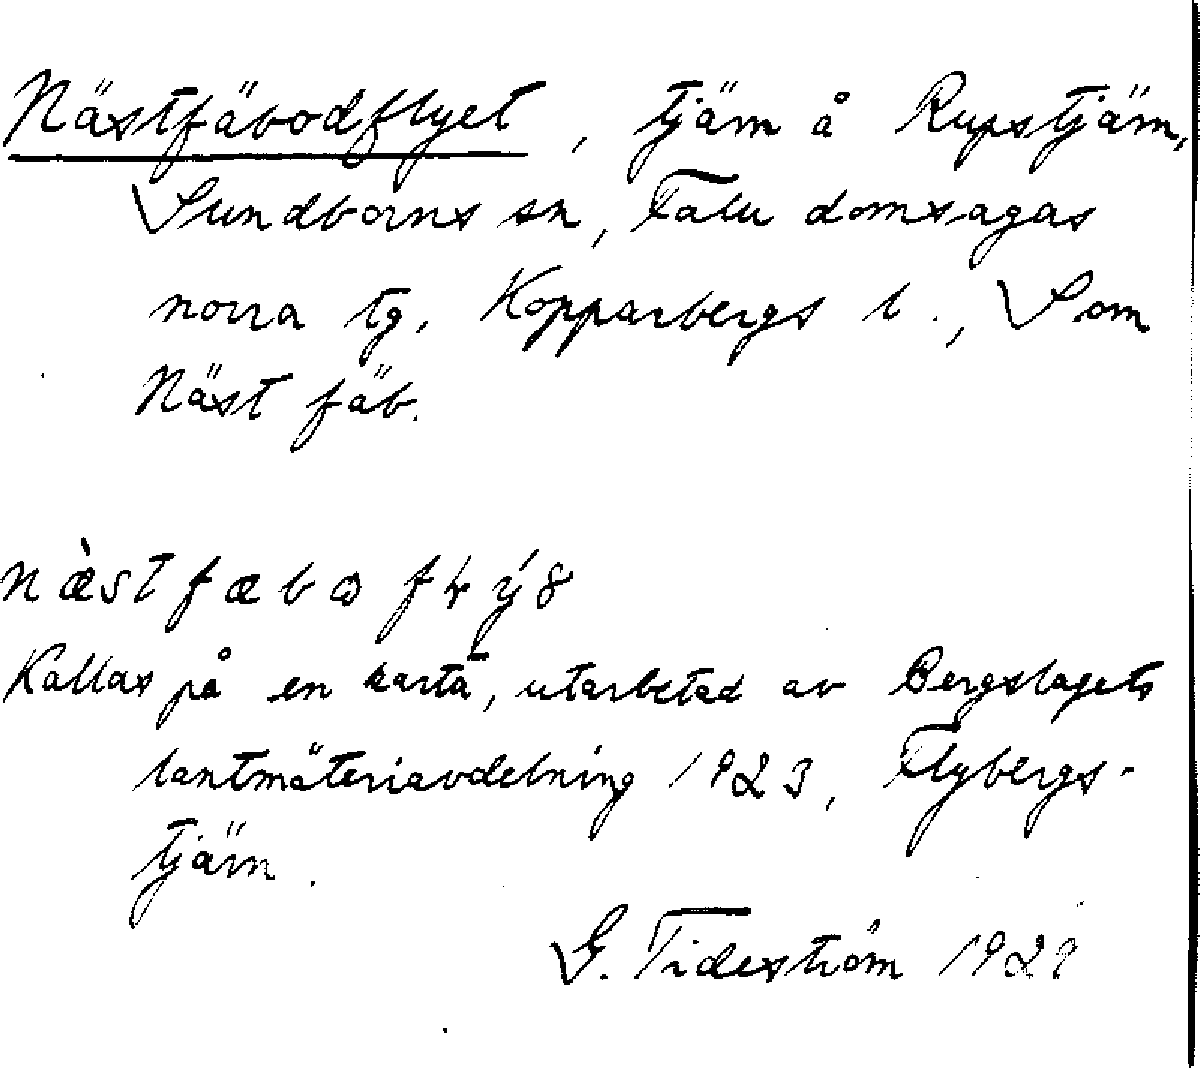 Nästfäbodflyet, tjärn å Rupstjärn,
Sundborns sn, Falu domsagas
norra tg, Kopparbergs l., Som
Näst fäb.
næ̀stfæbɷ fɬý8
Kallas på en karta, utarbetad av Bergslagets
lantmäteriavdelning 1923, Flybergs-
tjärn.
G. Tideström 1929